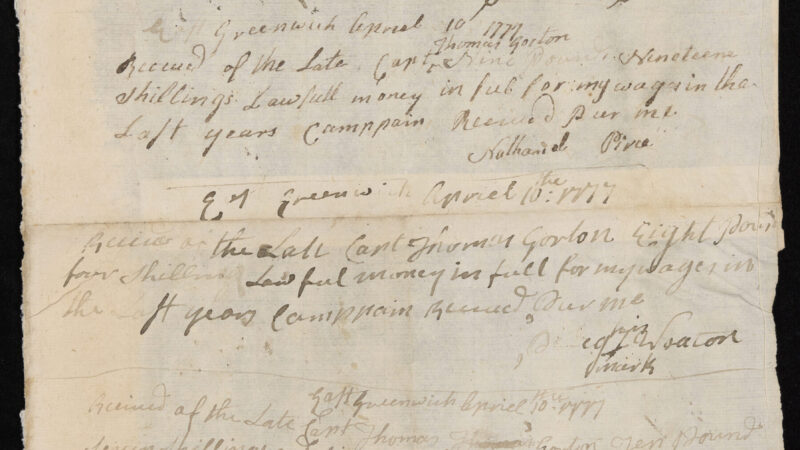 East Greenwich Apriel 10 1777
Thomas Gorton
Receued of the Late Capt Nine Pounds Nineteene
Shillings Lawfull money in full for my wages in the
Last years Camppain Receued Pur me
Nathaniel Pirce
East Greenwich Apriel 10th: 1777
Receued of the Late Capt Thomas Gorton Eight Pound
four Shilling Lawful money in full for my wages in
the Last years Camppain Receued Pur me
his
mark
East Greenwich Apriel 10th 1777
Receued of the Late Capt Thomas Gorton Ten Pound
seven shillings